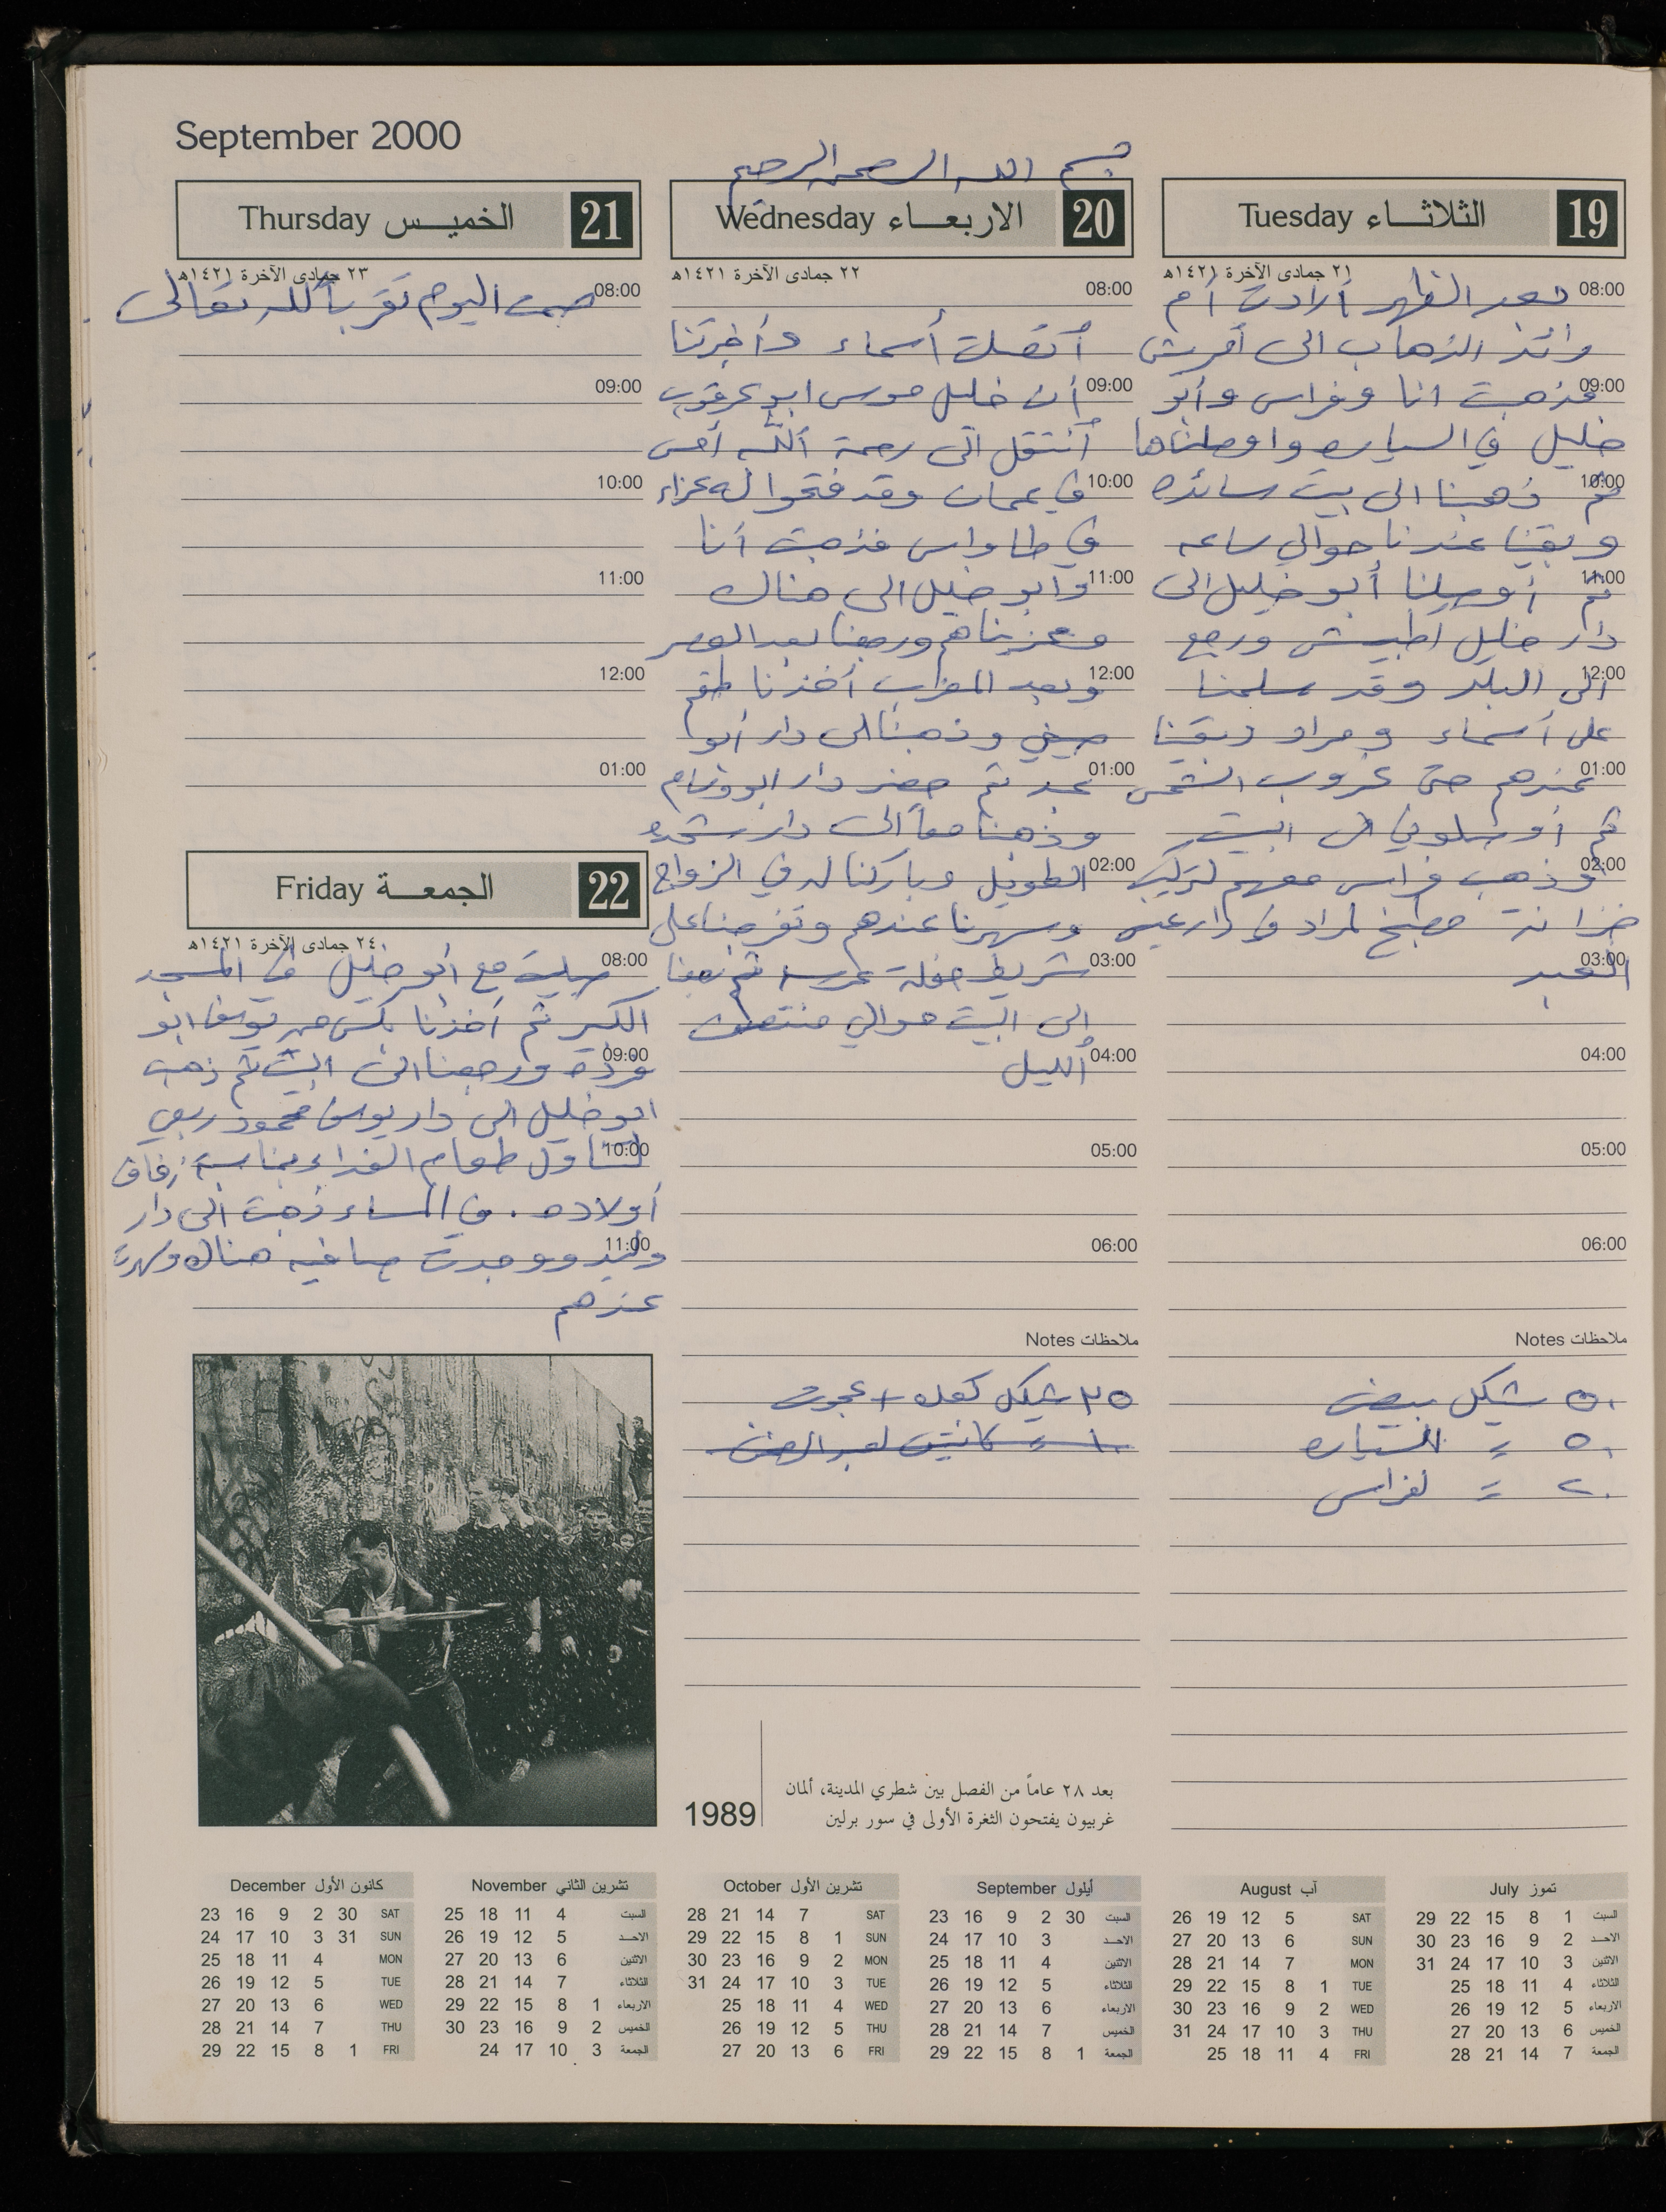 September 2000
بسم الله الرحمن الرحيم
19 الثلاثاء Tuesday
٢١ جمادى الآخرة ١٤٢١هـ
08:00 بعد الظهر أرادت أم
وائد الذهاب الى أفرش
09:00 فذهبت انا وفراس وأبو
خليل في السياره واوصلناها
10:00 ثم ذهبنا الى بيت سائده
وبقينا عندنا حوالي ساعه
11:00 ثم أوصلنا أبو خليل الى
دار خليل اطبيش ورجع
12:00 الى البلد وقد سلمنا
على أسماء ومراد وبقينا
01:00 عندهم حتى غروب الشمس
ثم أوصلوني الى البيت
02:00 وذهب فراس معهم لتركيب
خزانة مطبخ لمراد في دار عيسى
03:00 العبد
04:00
05:00
06:00
ملاحظات Notes
٥٠ شيكل بيض
٥٠ = للسياره
٢٠ = لفراس
20 الاربعاء Wednesday
٢٢ جمادى الآخرة ١٤٢١هـ
08:00
أتصلت أسماء وأخبرتنا
09:00 أن خليل موسى ابو عرقوب
أنتقل الى رحمة الله أمس
10:00 في عمان وقد فتحوا له عزاء
في طاواس فذهبت أنا
11:00 وأبو خليل الى هناك
وعزيناهم ورجعنا بعد العصر
12:00 وبعد المغرب أخذنا طقم
صيني وذهبنا الى دار أبو
01:00 عبد ثم حضر دار ابو وسام
وذهبنا معاً الى دار شحده
02:00 الطويل وباركنا له في الزواج
وسهرنا عندهم وتفرجنا على
03:00 شريط حفلة عرسه ثم رجعنا
الى البيت حوالي منتصف
04:00 الليل
05:00
06:00
ملاحظات Notes
٢٥ شيكل كعك + عجوه
١٠ = كانتين لعبد الرحمن
21 الخميس Thursday
٢٣ جمادى الآخرة ١٤٢١هـ
08:00 صمت اليوم تقرباً لله تعالى
09:00
10:00
11:00
12:00
01:00
22 الجمعة Friday
٢٤ جمادى الآخرة ١٤٢١هـ
08:00 صليت مع أبو خليل في المسجد
الكبير ثم أخذنا بكس من يوسف ابو
09:00 ورجعنا الى البيت ثم ذهب
ابو خليل الى دار يوسف محمود ربعي
10:00 لتناول طعام الغداء بمناسبة زفاف
أولاده . في المساء ذهبت الى دار
11:00 وليد ووجدت صافيه هناك وسهرت
عندهم
1989
بعد ٢٨ عاماً من الفصل بين شطري المدينة، ألمان
غربيون يفتحون الثغرة الأولى في سور برلين
تموز July
السبت 1 8 15 22 29
الاحد 2 9 16 23 30
الاثنين 3 10 17 24 31
الثلاثاء 4 11 18 25
الاربعاء 5 12 19 26
الخميس 6 13 20 27
الجمعة 7 14 21 28
آب August
SAT 5 12 19 26
SUN 6 13 20 27
MON 7 14 21 28
TUE 1 8 15 22 29
WED 2 9 16 23 30
THU 3 10 17 24 31
FRI 4 11 18 25
أيلول September
السبت 30 2 9 16 23
الاحد 3 10 17 24
الاثنين 4 11 18 25
الثلاثاء 5 12 19 26
الاربعاء 6 13 20 27
الخميس 7 14 21 28
الجمعة 1 8 15 22 29
تشرين الأول October
SAT 7 14 21 28
SUN 1 8 15 22 29
MON 2 9 16 23 30
TUE 3 10 17 24 31
WED 4 11 18 25
THU 5 12 19 26
FRI 6 13 20 27
تشرين الثاني November
السبت 4 11 18 25
الاحد 5 12 19 26
الاثنين 6 13 20 27
الثلاثاء 7 14 21 28
الاربعاء 1 8 15 22 29
الخميس 2 9 16 23 30
الجمعة 3 10 17 24
كانون الأول December
SAT 30 2 9 16 23
SUN 31 3 10 17 24
MON 4 11 18 25
TUE 5 12 19 26
WED 6 13 20 27
THU 7 14 21 28
FRI 1 8 15 22 29